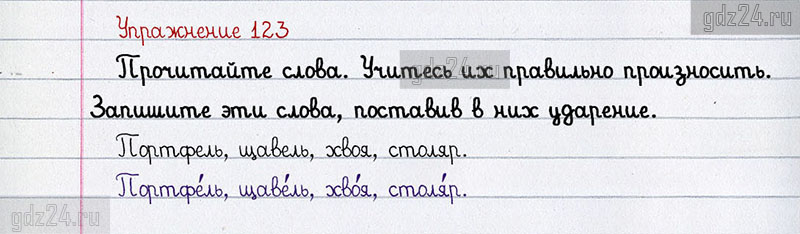 gdz24.ru
Упражнение 123
Прочитайте слова. Учитесь их правильно произносить.
gdz24.ru
Запишите эти слова, поставив в них ударение.
Портфель, щавель, хвоя, столяр.
Портфе́ль, щаве́ль, хво́я, столя́р.
gdz24.ru